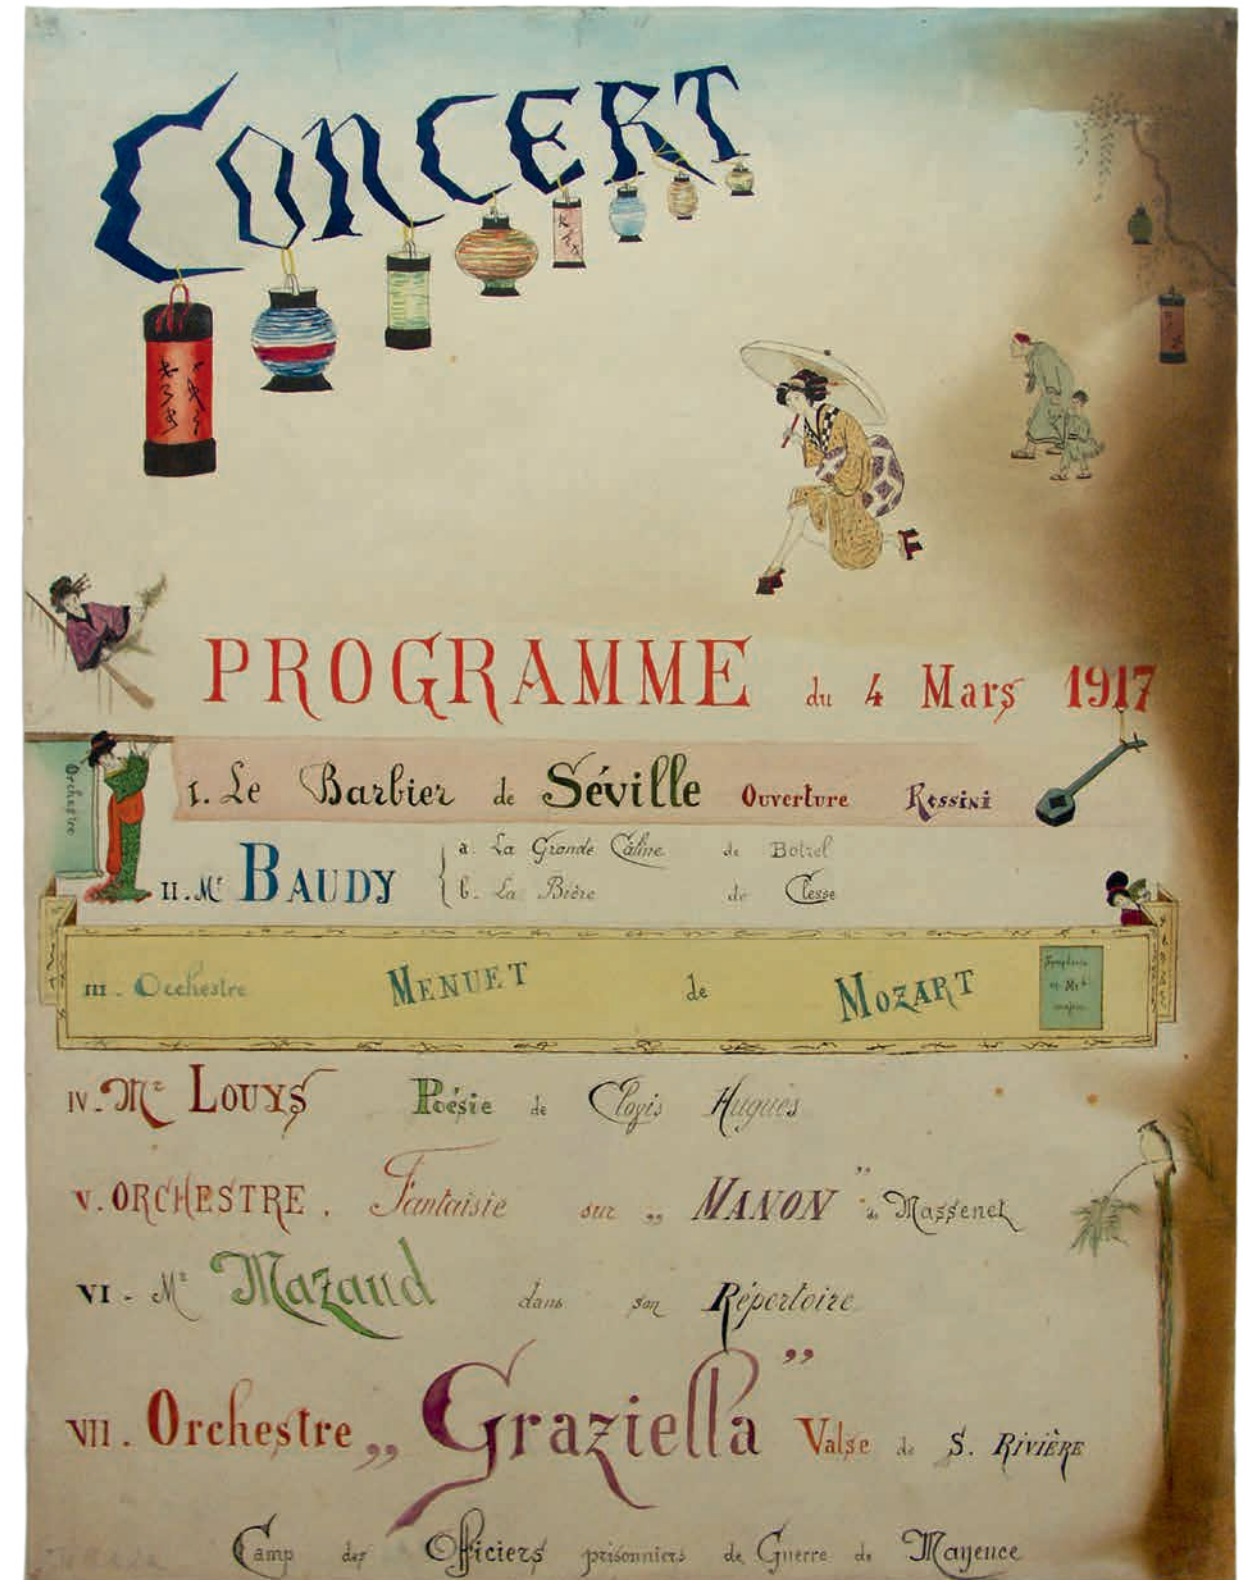 CONCERT
PROGRAMME du 4 Mars 1917
Orchestre
I. Le Barbier de Séville Ouverture Rossini
II. Mr BAUDY
a. La Grande Câline de Botrel
b. La Bière de Clesse
III. Orchestre MENUET de MOZART
Symphonie
en Mi b
majeur
IV. Mr LOUYS Poésie de Clovis Hugues
V. ORCHESTRE. Fantaisie sur „MANON” de Massenet
VI - Mr Mazaud dans son Répertoire
VII. Orchestre „Graziella” Valse de S. RIVIÈRE
Camp des Officiers prisonniers de Guerre de Mayence